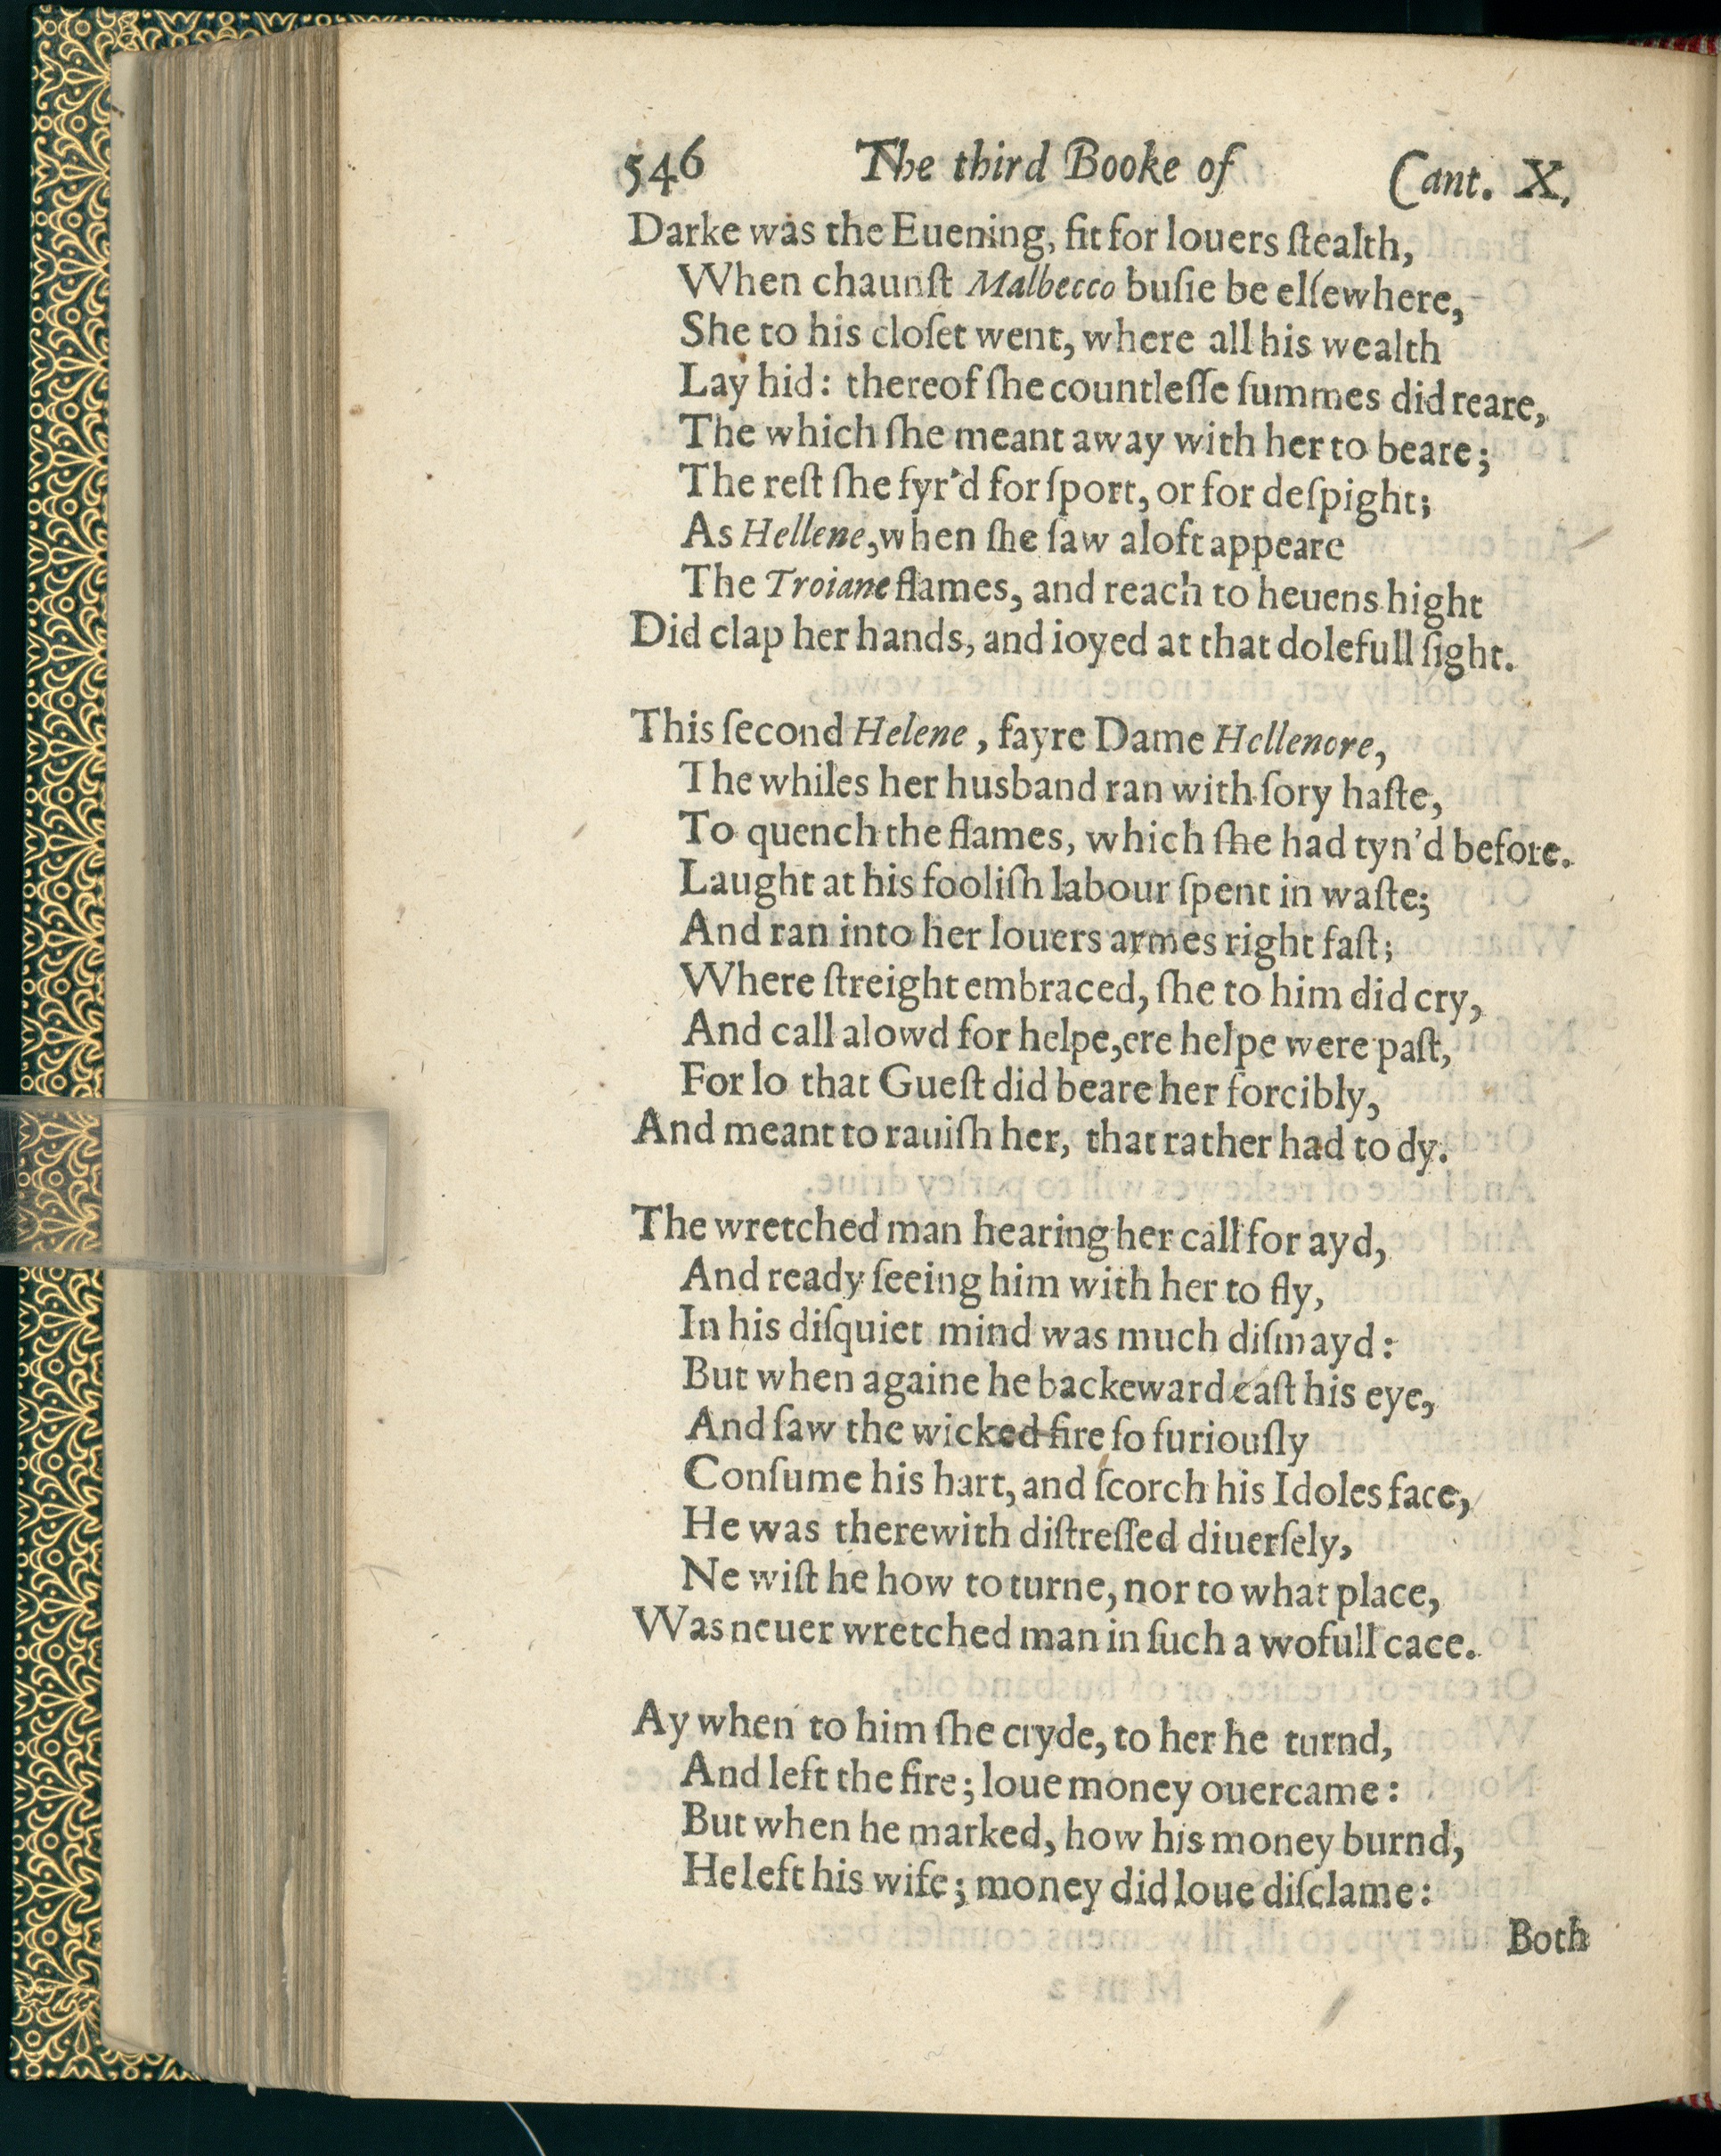 546 The third Booke of Cant. X.
Darke was the Euening, fit for louers ſtealth,
When chaunſt Malbecco buſie be elſewhere,
She to his cloſet went, where all his wealth
Lay hid: thereof ſhe countleſſe ſummes did reare,
The which ſhe meant away with her to beare;
The reſt ſhe fyr'd for ſport, or for deſpight;
As Hellene, when ſhe ſaw aloft appeare
The Troiane flames, and reach to heuens hight
Did clap her hands, and ioyed at that dolefull ſight.
This ſecond Helene, fayre Dame Hellenore,
The whiles her husband ran with ſory haſte,
To quench the flames, which ſhe had tyn'd before.
Laught at his fooliſh labour ſpent in waſte;
And ran into her louers armes right faſt;
Where ſtreight embraced, ſhe to him did cry,
And call alowd for helpe, ere helpe were paſt,
For lo that Gueſt did beare her forcibly,
And meant to rauiſh her, that rather had to dy.
The wretched man hearing her call for ayd,
And ready ſeeing him with her to fly,
In his diſquiet mind was much diſmayd:
But when againe he backeward caſt his eye,
And ſaw the wicked fire ſo furiouſly
Conſume his hart, and ſcorch his Idoles face,
He was therewith diſtreſſed diuerſely,
Ne wiſt he how to turne, nor to what place,
Was neuer wretched man in ſuch a wofull cace.
Ay when to him ſhe cryde, to her he turnd,
And left the fire; loue money ouercame:
But when he marked, how his money burnd,
He left his wife; money did loue diſclame:
Both